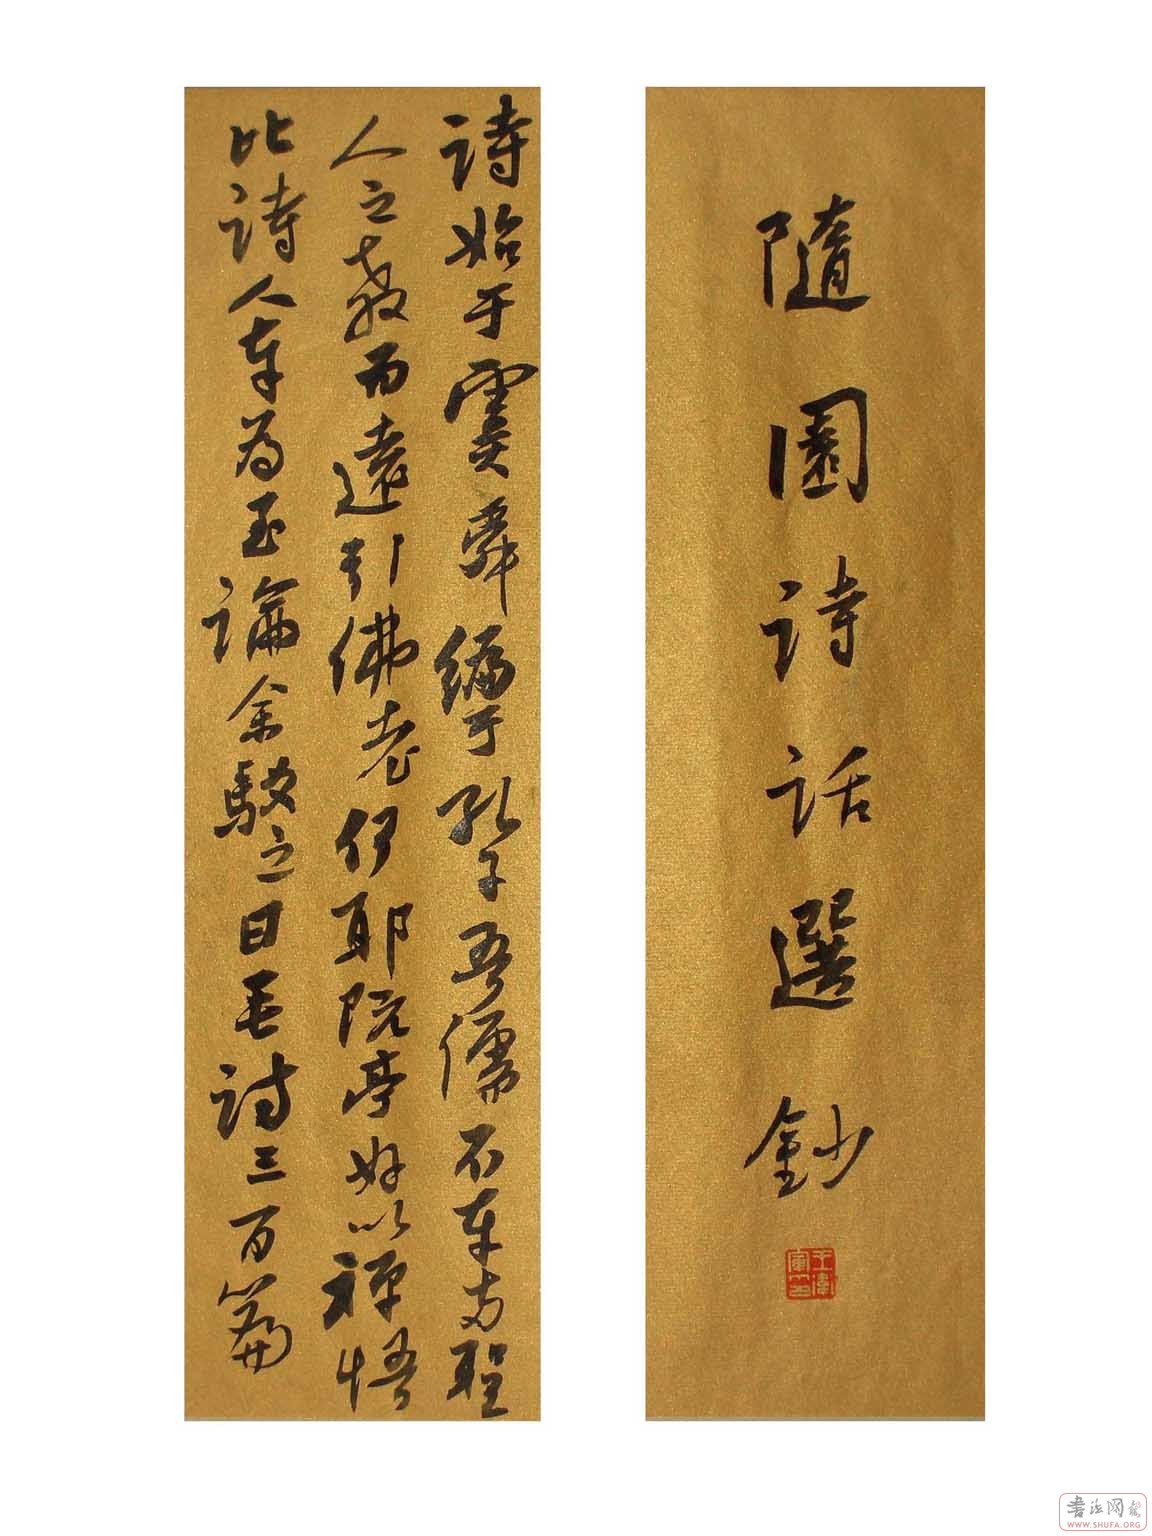 隨園詩話選鈔
詩始于虞舜編于孔子吾儒不奉兩聖
人之教而遠引佛老何耶阮亭好以禪悟
比詩人奉為至論余駁之曰毛詩三百篇
書法网
WWW.SHUFA.ORG